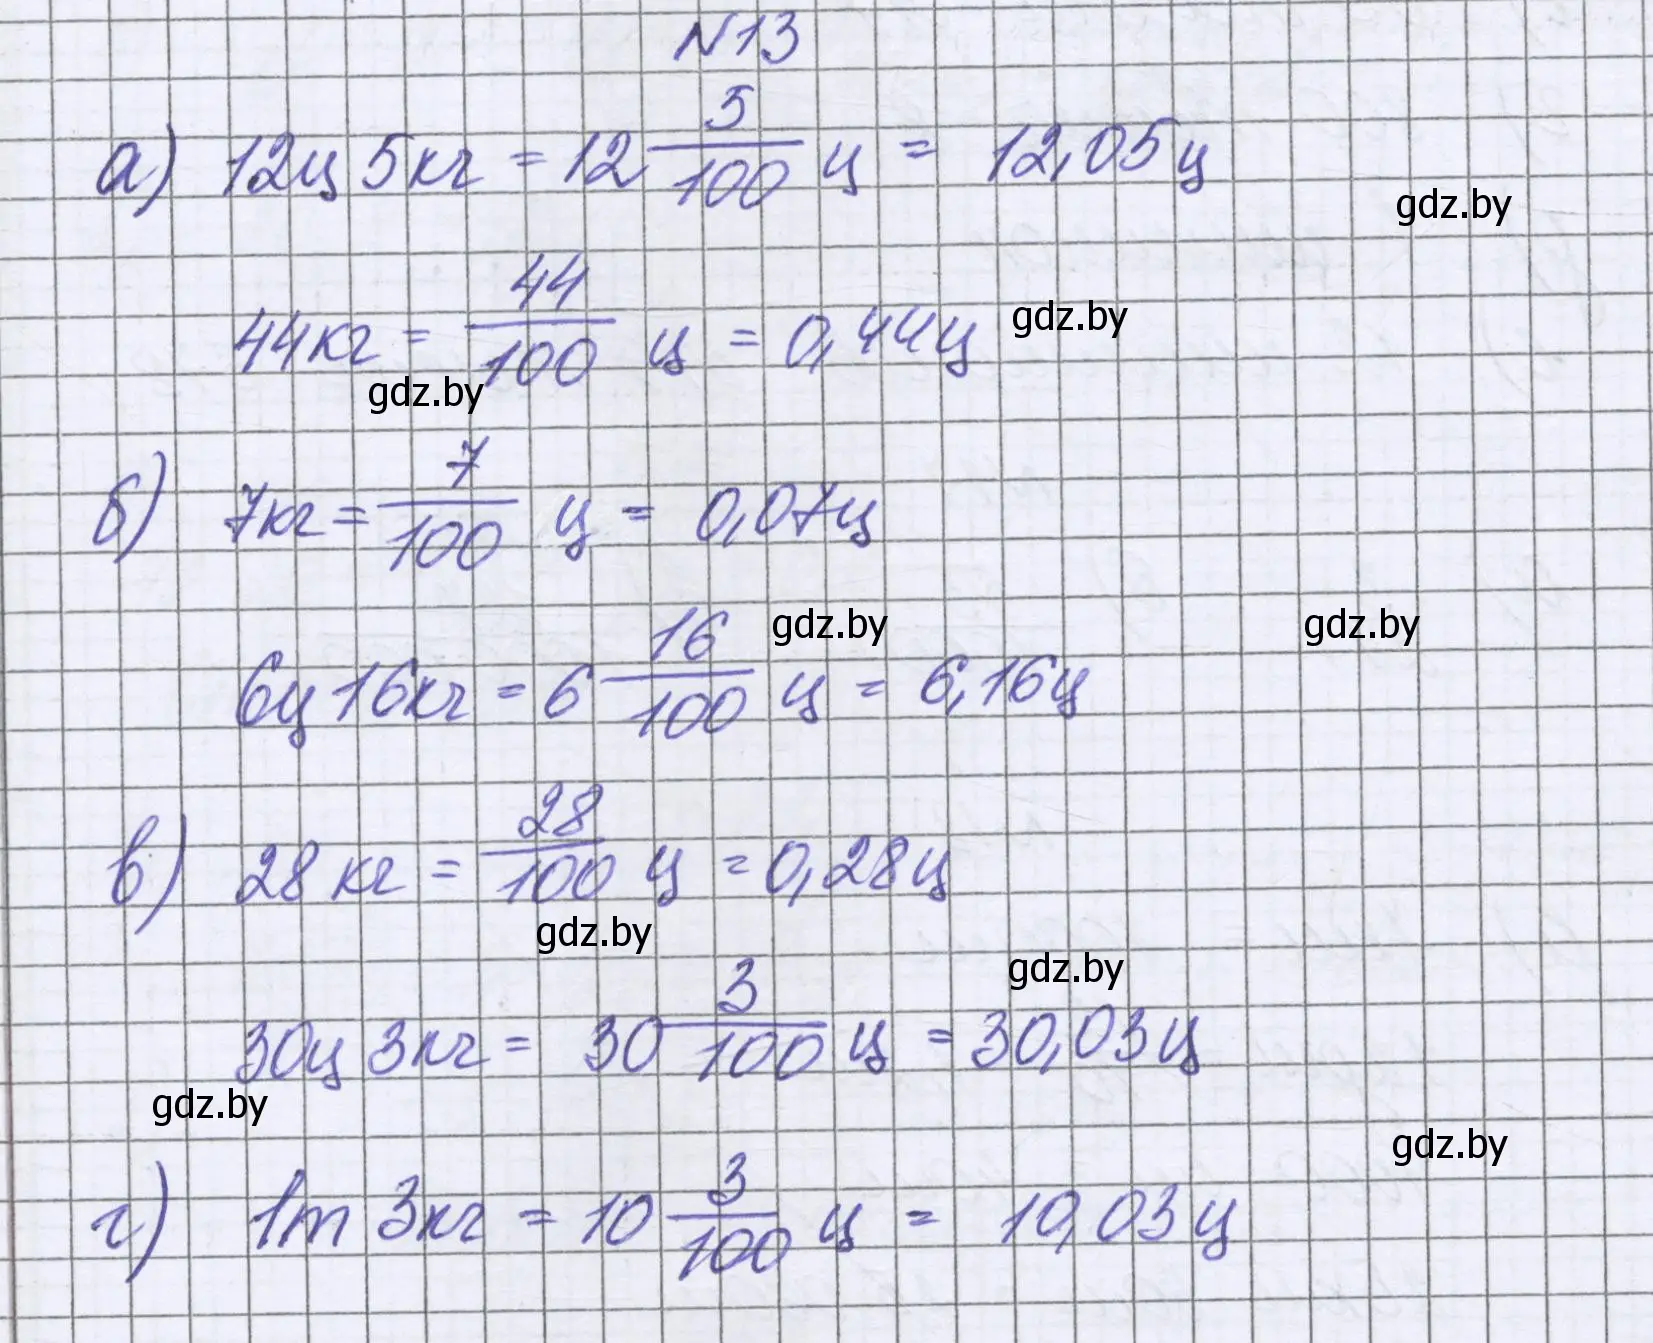 N13
а) 12ц 5кг = 12 5/100 ц = 12,05ц
gdz.by
44кг = 44/100 ц = 0,44ц
gdz.by
gdz.by
б) 7кг = 7/100 ц = 0,07ц
gdz.by
gdz.by
6ц 16кг = 6 16/100 ц = 6,16ц
в) 28 кг = 28/100 ц = 0,28ц
gdz.by
gdz.by
30ц 3кг = 30 3/100 ц = 30,03ц
gdz.by
gdz.by
г) 1т 3кг = 10 3/100 ц = 10,03ц